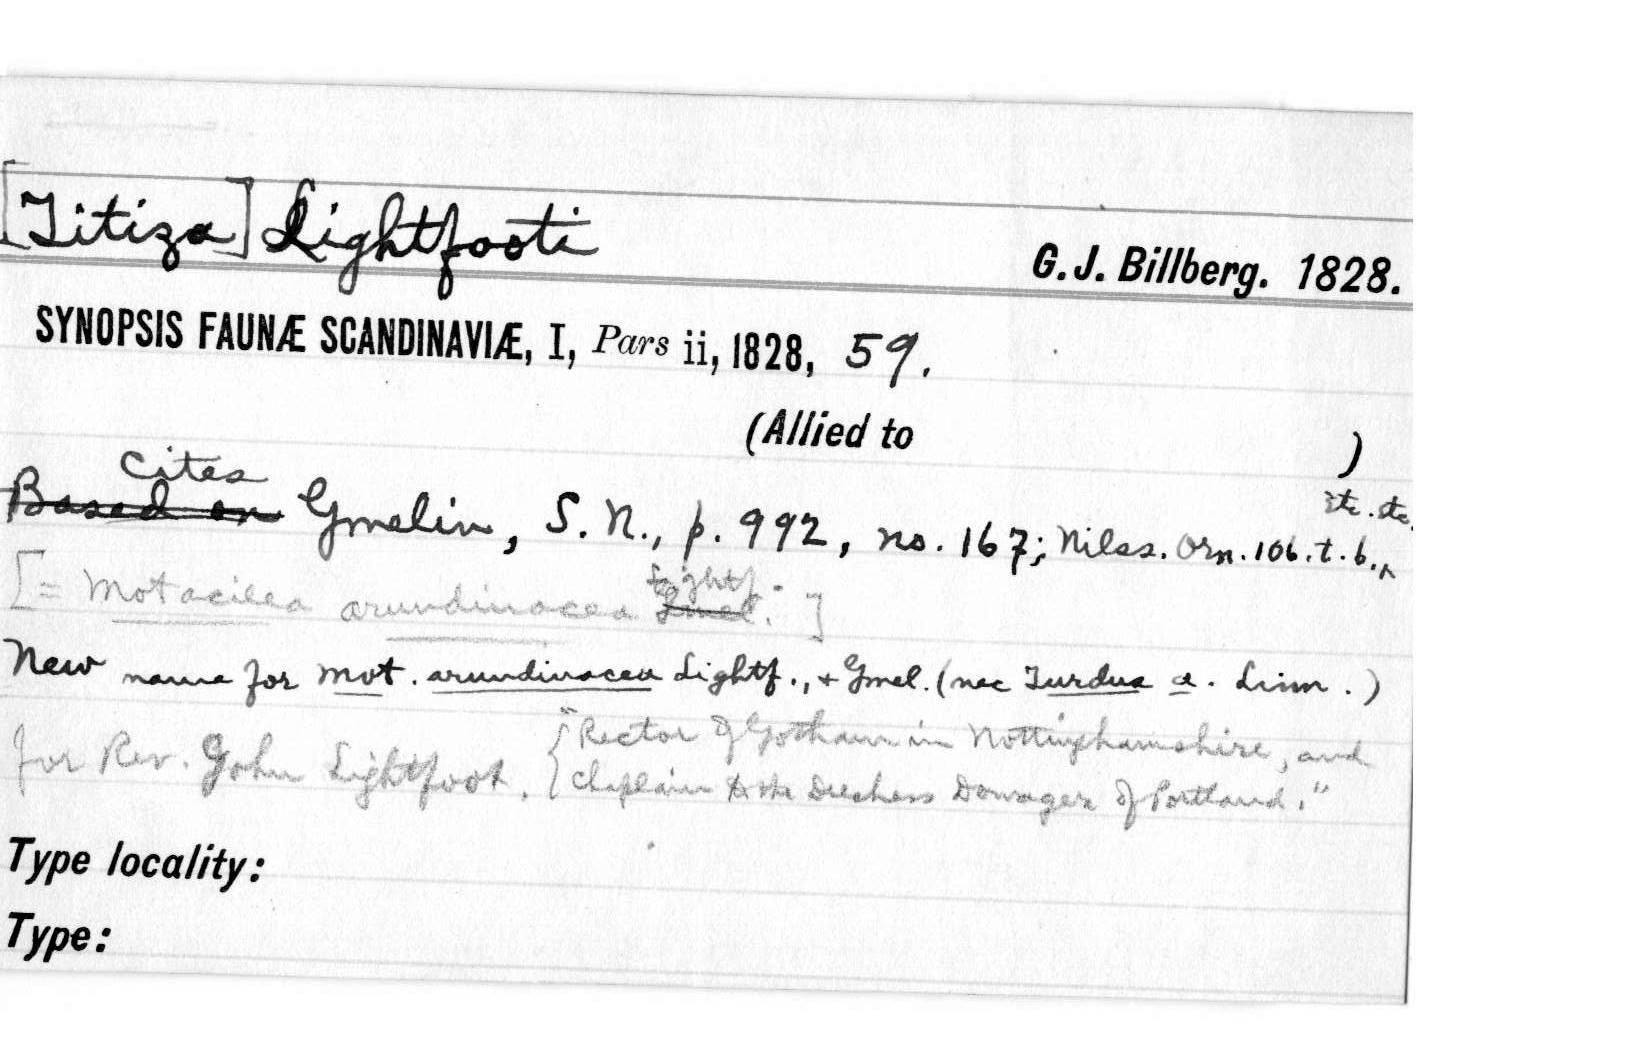 [Titiza] Lightfooti
G. J. Billberg. 1828.
SYNOPSIS FAUNÆ SCANDINAVIÆ, I, Pars ii, 1828, 59.
(Allied to )
cites
Based on Gmelin, S. N., p. 992, no. 167; Nilss. Orn. 106. t. 6.^ etc. etc.
[= Motacilla arundinacea Gmel. Lightf. ]
New name for Mot. arundinacea Lightf., + Gmel. (nec Turdus a. Linn.)
for Rev. John Lightfoot. { "Rector of Gotham in Nottinghamshire, and
chaplain to the Duchess Dowager of Portland."
Type locality:
Type: